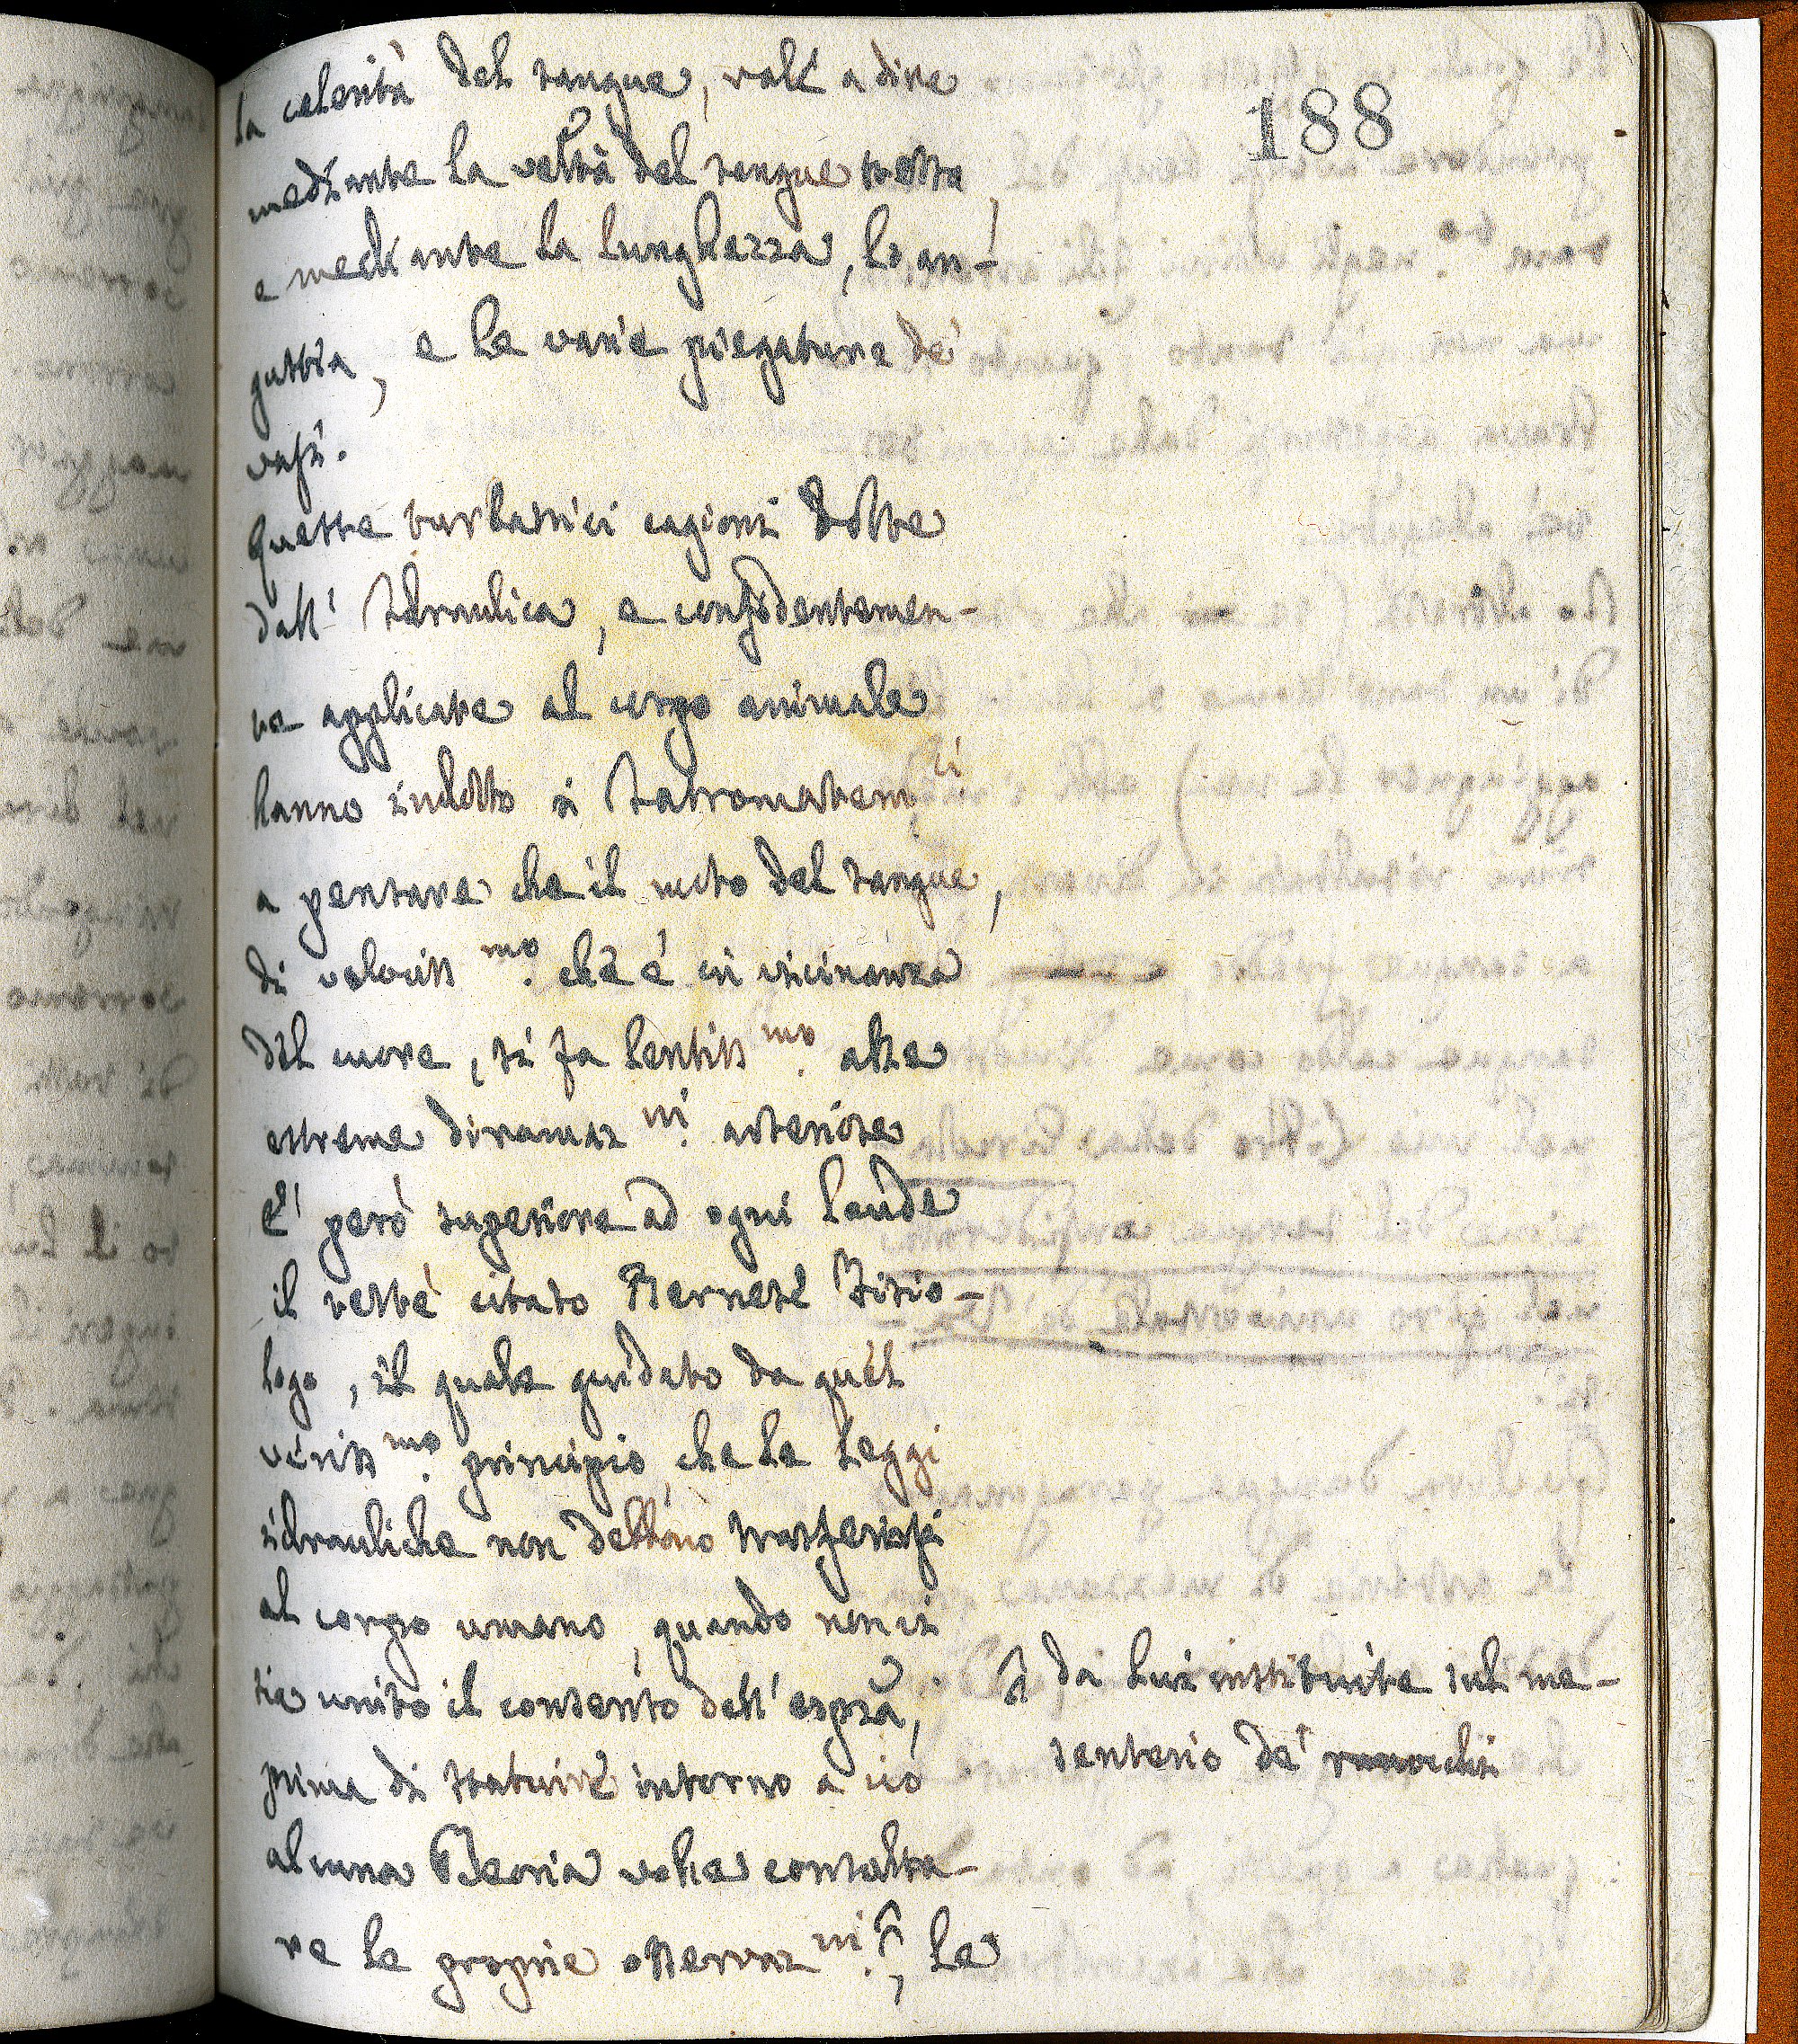 188
la celerità del sangue, vale a dire
mediante la vettà del sangue stesso,
e mediante la lunghezza, lo an-
gustia, e le varie piegature de'
vasi.
Queste ritardatrici cagioni dotte
dall' Idraulica, e confidentemen-
te applicate al corpo animale
hanno indotto i Iatromatemci
a pensare che il moto del sangue,
di velociss.mo che è in vicinanza
del cuore, si fa lentiss.mo alle
estreme diramaz.ni arteriose
E' però superiore ad ogni laude
il testé citato Bernese Fisio-
logo, il quale guidato da quel
veriss.mo principio, che le leggi
idrauliche non debbono trasferirsi
al corpo umano, quando non ci
sia unito il consenso dell' esprza,
prima di statuire intorno a ciò
alcuna Teoria volle consulta-
re le proprie osservaz.ni, le
da lui instituite sul me-
senterio de' ranocchi